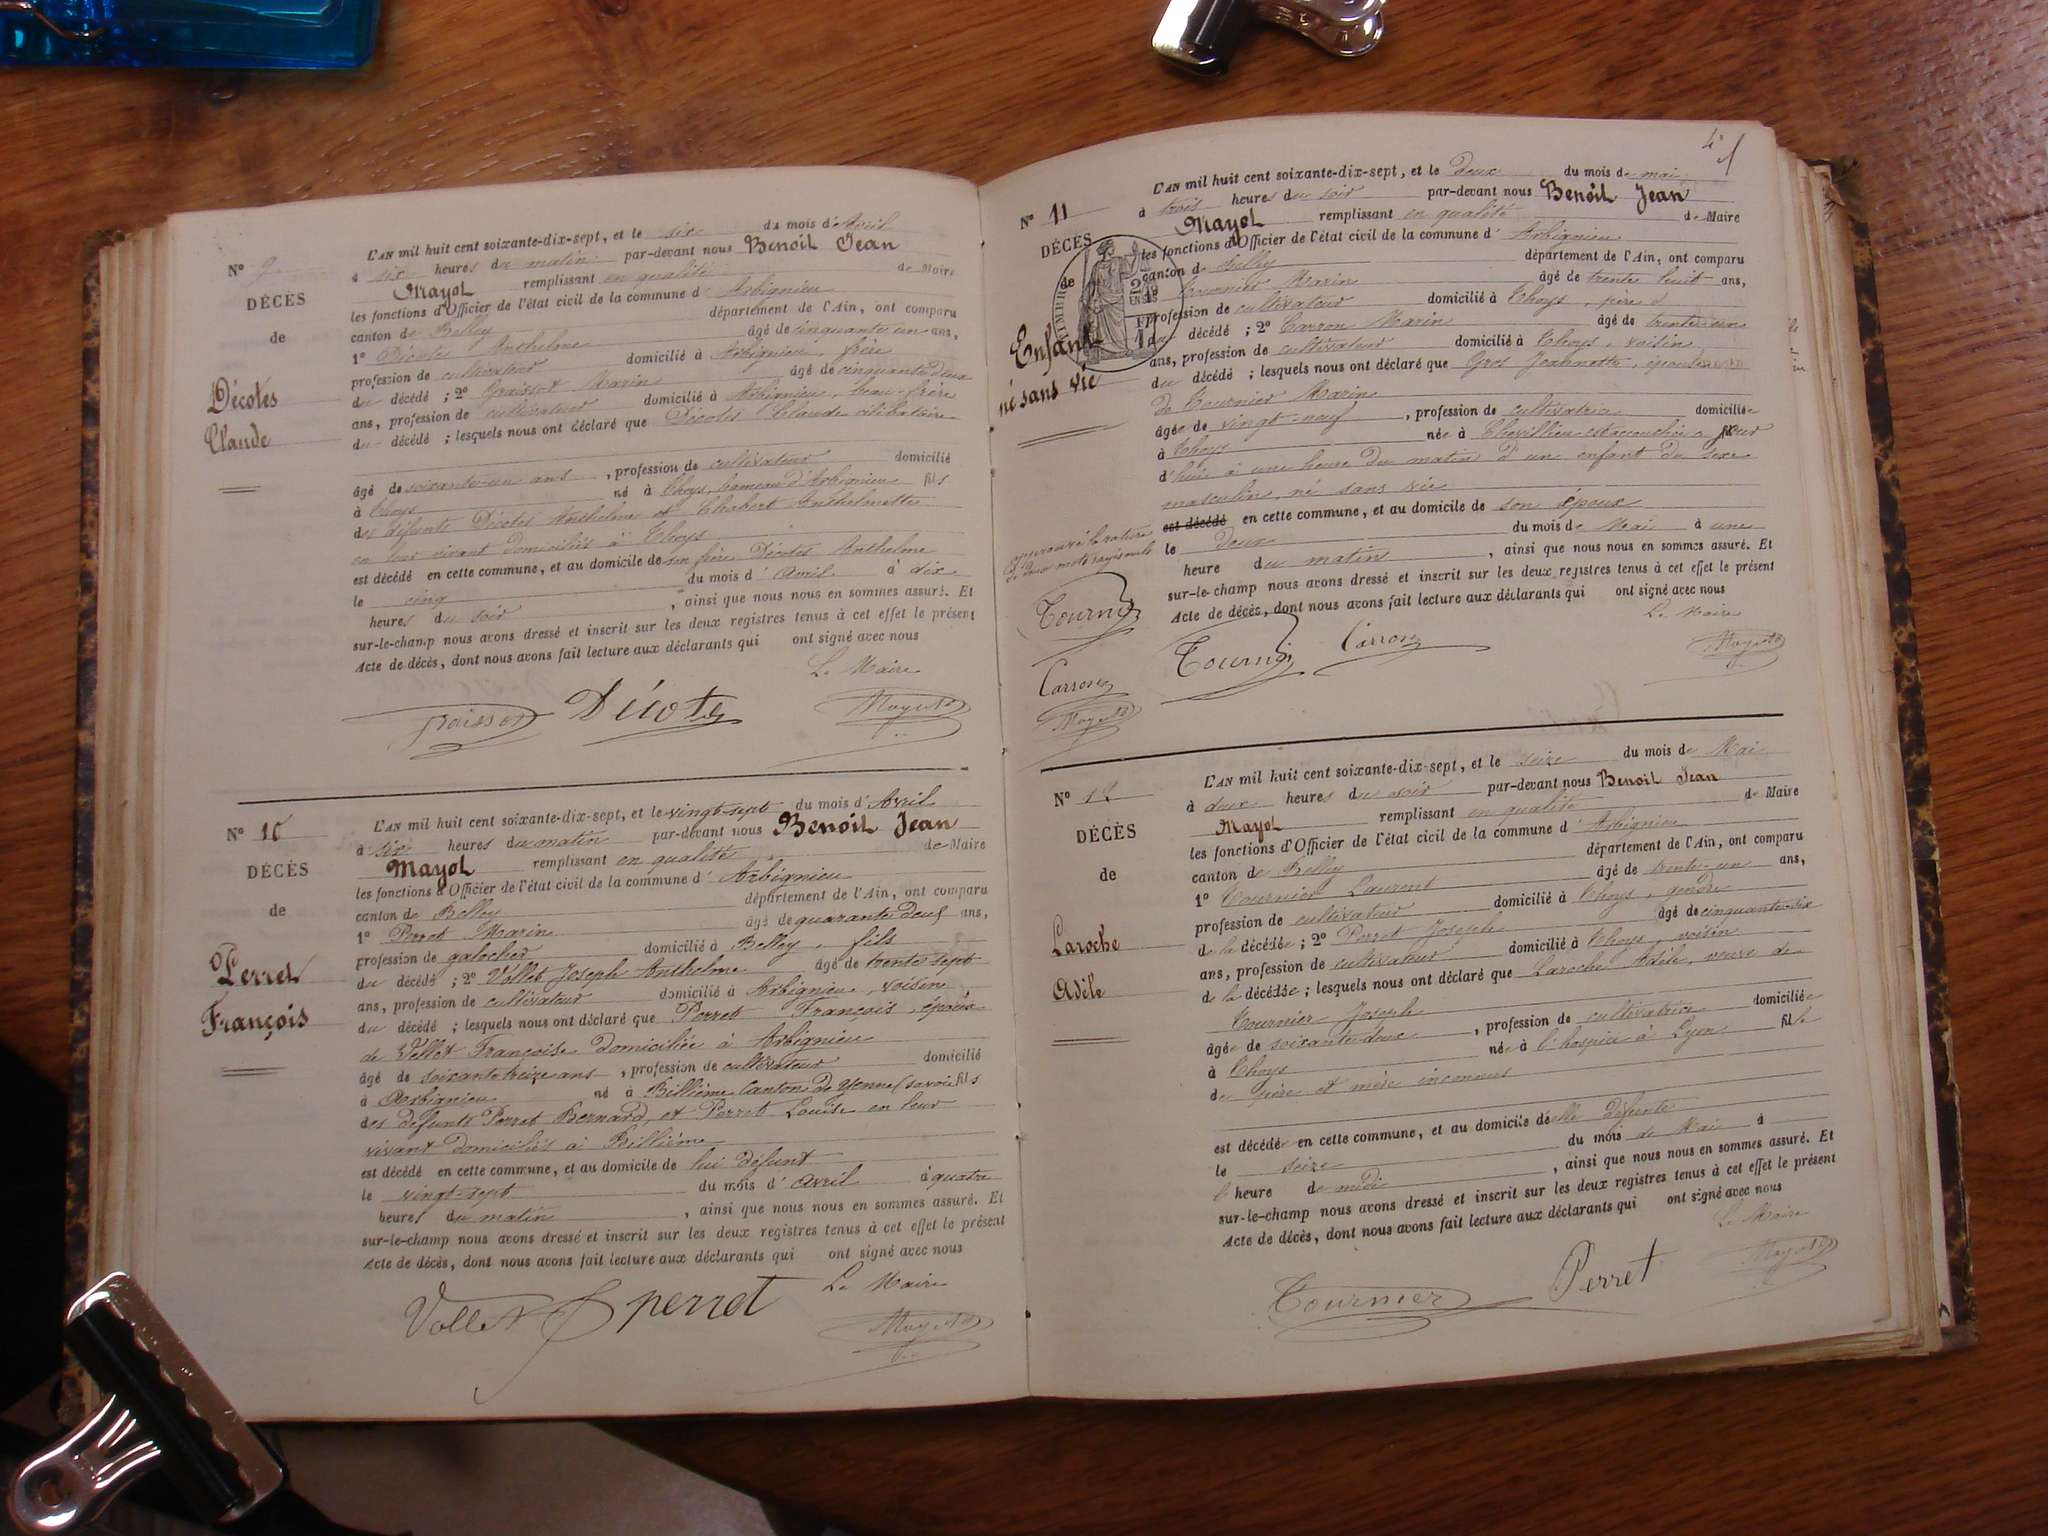 N° 9
DÉCÈS
de
Décotes
Claude
L'AN mil huit cent soixante-dix-sept, et le six du mois d'Avril
à six heures du matin par-devant nous Benoît Jean
Mayot remplissant en qualité de Maire
les fonctions d'Officier de l'état civil de la commune d'Arbignieu
canton de Belley département de l'Ain, ont comparu
1° Décotes Anthelme âgé de cinquante un ans,
profession de cultivateur domicilié à Arbignieu, frère
du décédé ; 2° Graissot Marin âgé de cinquante deux
ans, profession de cultivateur domicilié à Arbignieu, beau-frère
du décédé ; lesquels nous ont déclaré que Décotes Claude célibataire
âgé de soixante-un ans, profession de cultivateur domicilié
à Thoys né à Thoys, hameau d'Arbignieu fils
des défunts Décotes Anthelme et Chabert Anthelmette
en leur vivant domiciliés à Thoys
est décédé en cette commune, et au domicile de son frère Décotes Anthelme
le cinq du mois d'Avril à dix
heures du soir, ainsi que nous nous en sommes assuré. Et
sur-le-champ nous avons dressé et inscrit sur les deux registres tenus à cet effet le présent
Acte de décès, dont nous avons fait lecture aux déclarants qui ont signé avec nous
Le Maire
Décotes
N° 10
DÉCÈS
de
Perret
François
L'AN mil huit cent soixante-dix-sept, et le vingt-sept du mois d'Avril
à six heures du matin par-devant nous Benoît Jean
Mayot remplissant en qualité de Maire
les fonctions d'Officier de l'état civil de la commune d'Arbignieu
canton de Belley département de l'Ain, ont comparu
1° Perret Marin âgé de quarante deux ans,
profession de galocher domicilié à Belley, fils
du décédé ; 2° Vollet Joseph Anthelme âgé de trente sept
ans, profession de cultivateur domicilié à Arbignieu, voisin
du décédé ; lesquels nous ont déclaré que Perret François, époux
de Vellet Françoise domiciliée à Arbignieu
âgé de soixante treize ans, profession de cultivateur domicilié
à Arbignieu né à Billième Canton de Yenne (Savoie fils
des défunts Perret Bernard, et Perret Louise en leur
vivant domiciliés à Billième
est décédé en cette commune, et au domicile de lui défunt
le vingt-sept du mois d'Avril à quatre
heures du matin, ainsi que nous nous en sommes assuré. Et
sur-le-champ nous avons dressé et inscrit sur les deux registres tenus à cet effet le présent
Acte de décès, dont nous avons fait lecture aux déclarants qui ont signé avec nous
Le Maire
Vollet perret
4e
N° 11
DÉCÈS
de
Enfant
né sans vie
L'AN mil huit cent soixante-dix-sept, et le deux du mois de mai
à trois heures du soir par-devant nous Benoît Jean
Mayot remplissant en qualité de Maire
les fonctions d'Officier de l'état civil de la commune d'Arbignieu
canton de Belley département de l'Ain, ont comparu
Tournier Marin âgé de trente huit ans,
profession de cultivateur domicilié à Thoys, père d
du décédé ; 2° Carron Marin âgé de trente-cinq
ans, profession de cultivateur domicilié à Thoys, voisin
du décédé ; lesquels nous ont déclaré que Gros Jeannette, épouse
de Tournier Marin
âgée de vingt-neuf, profession de cultivatrice domiciliée
à Thoys née à Chevillieu est accouchée
à une heure du matin d'un enfant du sexe
masculin, né sans vie
est décédé en cette commune, et au domicile de son époux
le deux du mois de Mai à une
heure du matin, ainsi que nous nous en sommes assuré. Et
sur-le-champ nous avons dressé et inscrit sur les deux registres tenus à cet effet le présent
Acte de décès, dont nous avons fait lecture aux déclarants qui ont signé avec nous
Le Maire
approuvé la rature
de deux mots rayés nuls
Tournier
Carron
Tournier Carron
N° 12
DÉCÈS
de
Laroche
Adèle
L'AN mil huit cent soixante-dix-sept, et le seize du mois de Mai
à deux heures du soir par-devant nous Benoît Jean
Mayot remplissant en qualité de Maire
les fonctions d'Officier de l'état civil de la commune d'Arbignieu
canton de Belley département de l'Ain, ont comparu
1° Tournier Laurent âgé de trente-un ans,
profession de cultivateur domicilié à Thoys, gendre
de la décédée ; 2° Perret Joseph âgé de cinquante-six
ans, profession de cultivateur domicilié à Thoys, voisin
de la décédée ; lesquels nous ont déclaré que Laroche Adèle, veuve de
Tournier Joseph
âgée de soixante-deux, profession de cultivatrice domiciliée
à Thoys née à l'hospice à Lyon fille
de père et mère inconnus
est décédée en cette commune, et au domicile d'elle défunte
le seize du mois de Mai à
l'heure de midi, ainsi que nous nous en sommes assuré. Et
sur-le-champ nous avons dressé et inscrit sur les deux registres tenus à cet effet le présent
Acte de décès, dont nous avons fait lecture aux déclarants qui ont signé avec nous
Le Maire
Tournier Perret